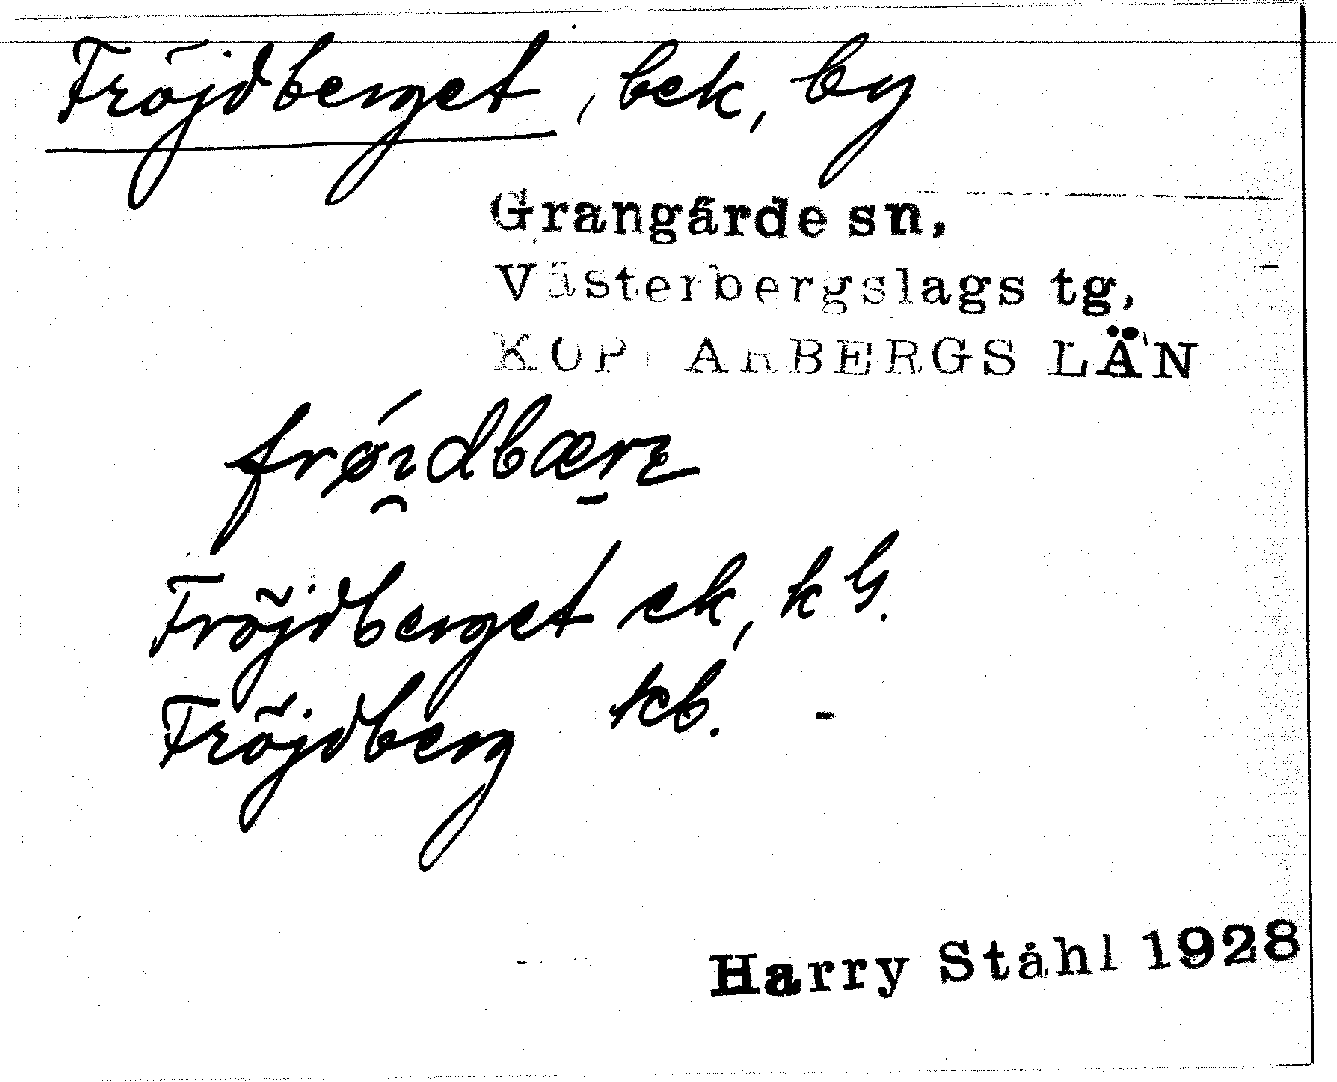 Fröjdberget, bek, by
Grangärde sn,
Västerbergslags tg,
KOPPARBERGS LÄN
frøɪdbærɛ
Fröjdberget ek, kG.
Fröjdberg kb. -
Harry Ståhl 1928